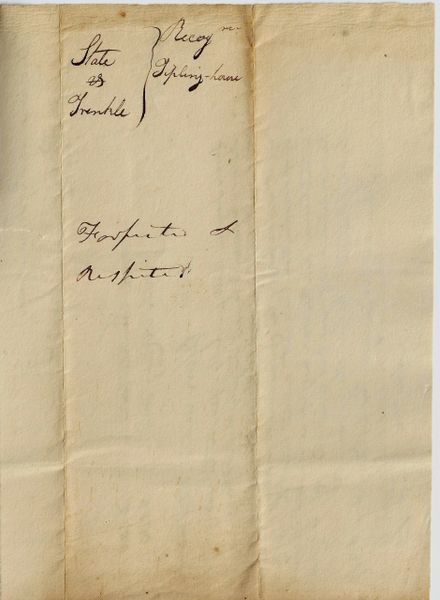 State
vs
Trenkle
Recog ce
Tipling-house
Forfeited &
Respited